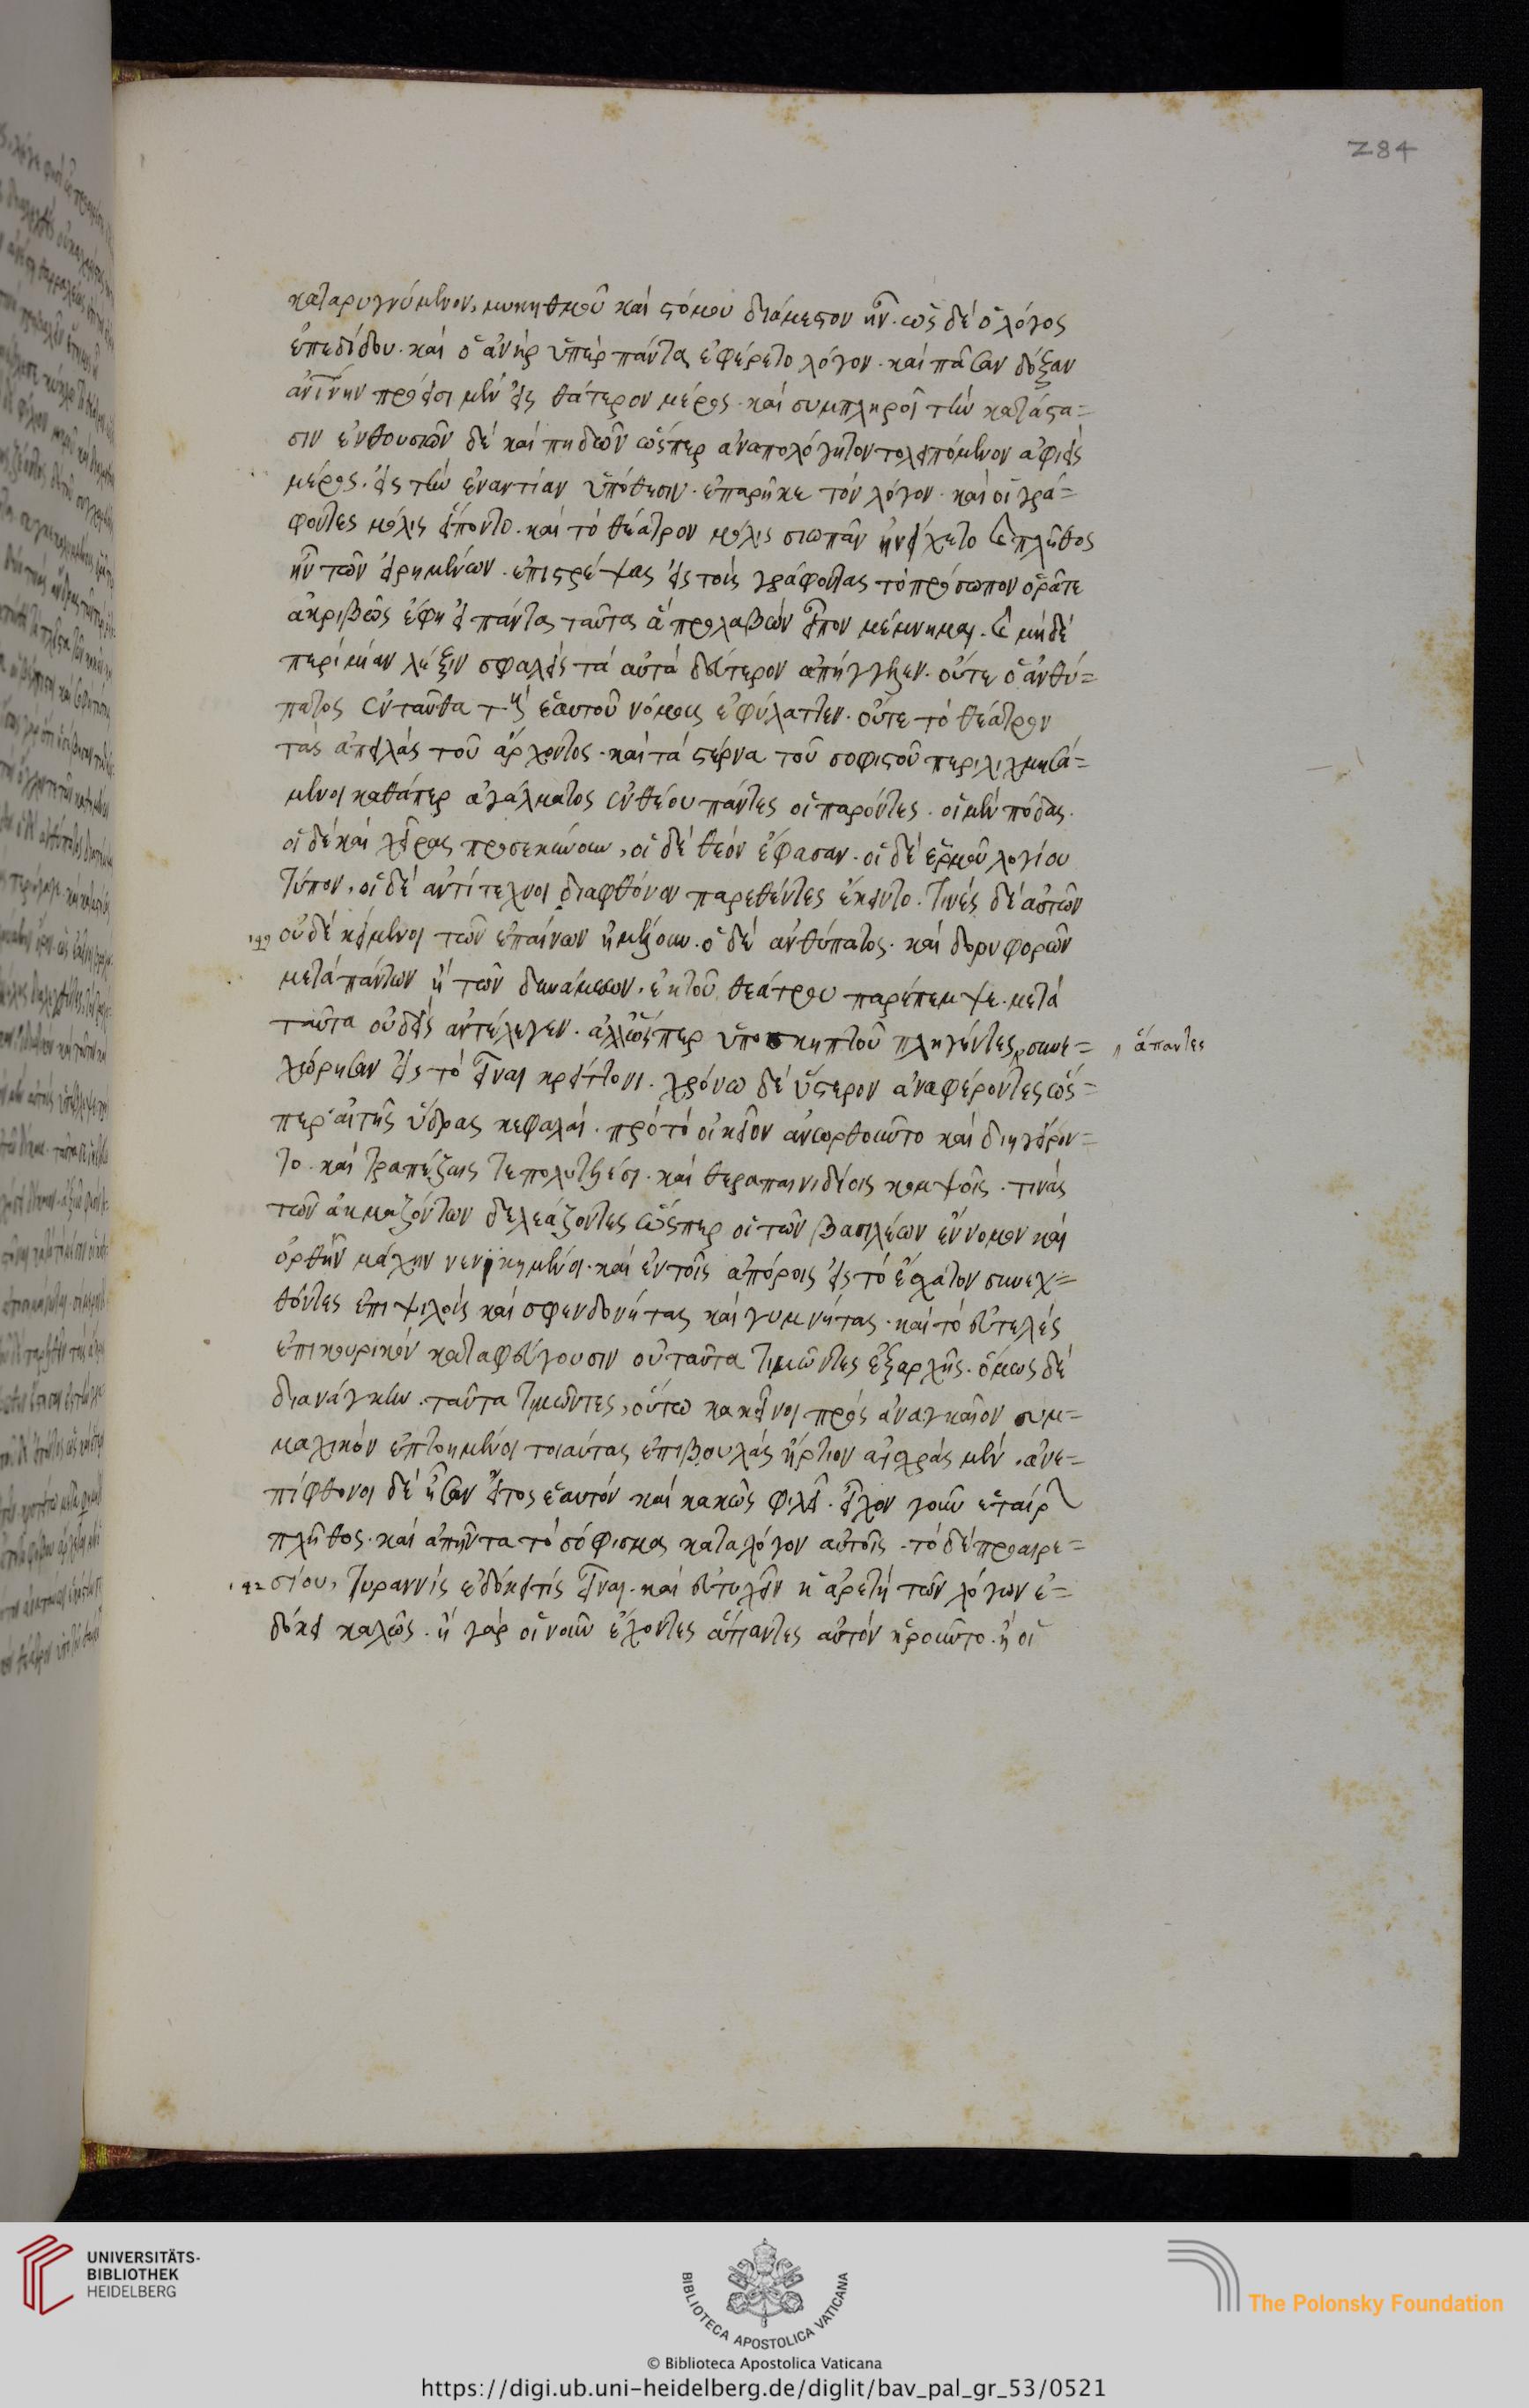 284
καταρυγνύμενον, μυκηθμοῦ καὶ στόμου διάμεστον ἦν. ὡς δὲ ὁ λόγος
ἐπεδίδου. καὶ ὁ ἀνὴρ ὑπὲρ πάντας ἐφέρετο λόγον. καὶ πᾶσαν δόξαν
ἀνθίνην πρόεισι μὲν εἰς θάτερον μέρος. καὶ συμπληροῖ τὴν κατάστα=
σιν ἐνθουσιῶν δὲ καὶ πηδῶν ὥσπερ ἀναπολόγητον τὸ λειπόμενον ἀφιεὶς
μέρος. εἰς τὴν ἐναντίαν ὑπόθεσιν. ἐπαφῆκε τὸν λόγον. καὶ οἱ γρά=
φοντες μόλις εἵποντο. καὶ τὸ θέατρον μόλις σιωπᾶν ἠνείχετο καὶ πλῆθος
ἦν τῶν εἰρημένων. ἐπιστρέψας εἰς τοὺς γράφοντας τὸ πρόσωπον ὁρᾶτε
ἀκριβῶς ἔφη εἰ πάντας ταῦτας ἃ προλαβὼν εἶπον μέμνημαι. καὶ μηδὲ
περὶ μίαν λέξιν σφαλεὶς τὰ αὐτὰ δεύτερον ἀπήγγειλεν. οὔτε ὁ ἀνθύ=
πατος ἐνταῦθα τοὺς ἑαυτοῦ νόμους ἐφύλαττεν. οὔτε τὸ θέατρον
τὰς ἀπειλὰς τοῦ ἄρχοντος. καὶ τὰ στέρνα τοῦ σοφιστοῦ περιλιχμησά=
μενοι καθάπερ ἀγάλματος ἐνθέου πάντες οἱ παρόντες. οἱ μὲν πόδας.
οἱ δὲ καὶ χεῖρας προσεκύνουν, οἱ δὲ θεὸν ἔφασαν. οἱ δὲ ἑρμοῦ λογίου
τύπον. οἱ δὲ ἀντίτεχνοι διαφθόνον παρεθέντες ἔκειντο. τινὲς δὲ αὐτῶν
οὐδὲ κείμενοι τῶν ἐπαίνων ἠμέλουν. ὁ δὲ ἀνθύπατος. καὶ δορυφορῶν
μετὰ πάντων ἢ τῶν δυνάμεων. ἐκ τοῦ θεάτρου παρέπεμψε. μετὰ
ταῦτα οὐδεὶς ἀντέλεγεν. ἀλλ' ὥσπερ ὑπὸ σκηπτοῦ πληγέντες συνε=
ἅπαντες
χώρησαν εἰς τὸ εἶναι κρείττονι. χρόνω δὲ ὕστερον ἀναφέροντες ὥσ=
περ αἱ τῆς ὕδρας κεφαλαί. πρὸς τὸ οἰκεῖον ἀνωρθοῦντο καὶ διηγείρον=
το. καὶ τραπέζαις τε πολυτελέσι. καὶ θεραπαινιδίοις κομψοῖς. τινὰς
τῶν ἀκμαζόντων δελεάζοντες ὥσπερ οἱ τῶν βασιλέων ἔννομον καὶ
ὀρθὴν μάχην νενικημένοι. καὶ ἐν τοῖς ἀπόροις εἰς τὸ ἔσχατον συνεχ=
θέντες ἐπὶ ψιλοὺς καὶ σφενδονήτας καὶ γυμνήτας. καὶ τὸ εὐτελὲς
ἐπικουρικὸν καταφεύγουσιν οὐ ταῦτα τιμῶντες ἐξ ἀρχῆς. ὅμως δὲ
δι' ἀνάγκην. ταῦτα τιμῶντες, οὕτω κἀκεῖνοι πρὸς ἀναγκαῖον συμ=
μαχικὸν ἐπτοημένοι τοιαύτας ἐπιβουλὰς ἤρτυον αἰσχρὰς μὲν. ἀνε=
πίφθονοι δὲ ἦσαν εἴ τος ἑαυτὸν καὶ κακῶς φιλεῖ. εἶχον γοῦν ἑταίρων
πλῆθος. καὶ ἀπήντα τὸ σόφισμα κατὰ λόγον αὐτοῖς. τὸ δὲ προαιρε=
192 σίου, τυραννὶς ἐδόκει τὶς εἶναι. καὶ εὐτυχεῖν ἡ ἀρετὴ τῶν λόγων ἐ=
δόκει καλῶς. ἢ γὰρ οἱ νοῦν ἔχοντες ἅπαντες αὐτὸν ᾑροῦντο. ἢ οἱ
UNIVERSITÄTS-
BIBLIOTHEK
HEIDELBERG
BIBLIOTECA APOSTOLICA VATICANA
© Biblioteca Apostolica Vaticana
The Polonsky Foundation
https://digi.ub.uni-heidelberg.de/diglit/bav_pal_gr_53/0521